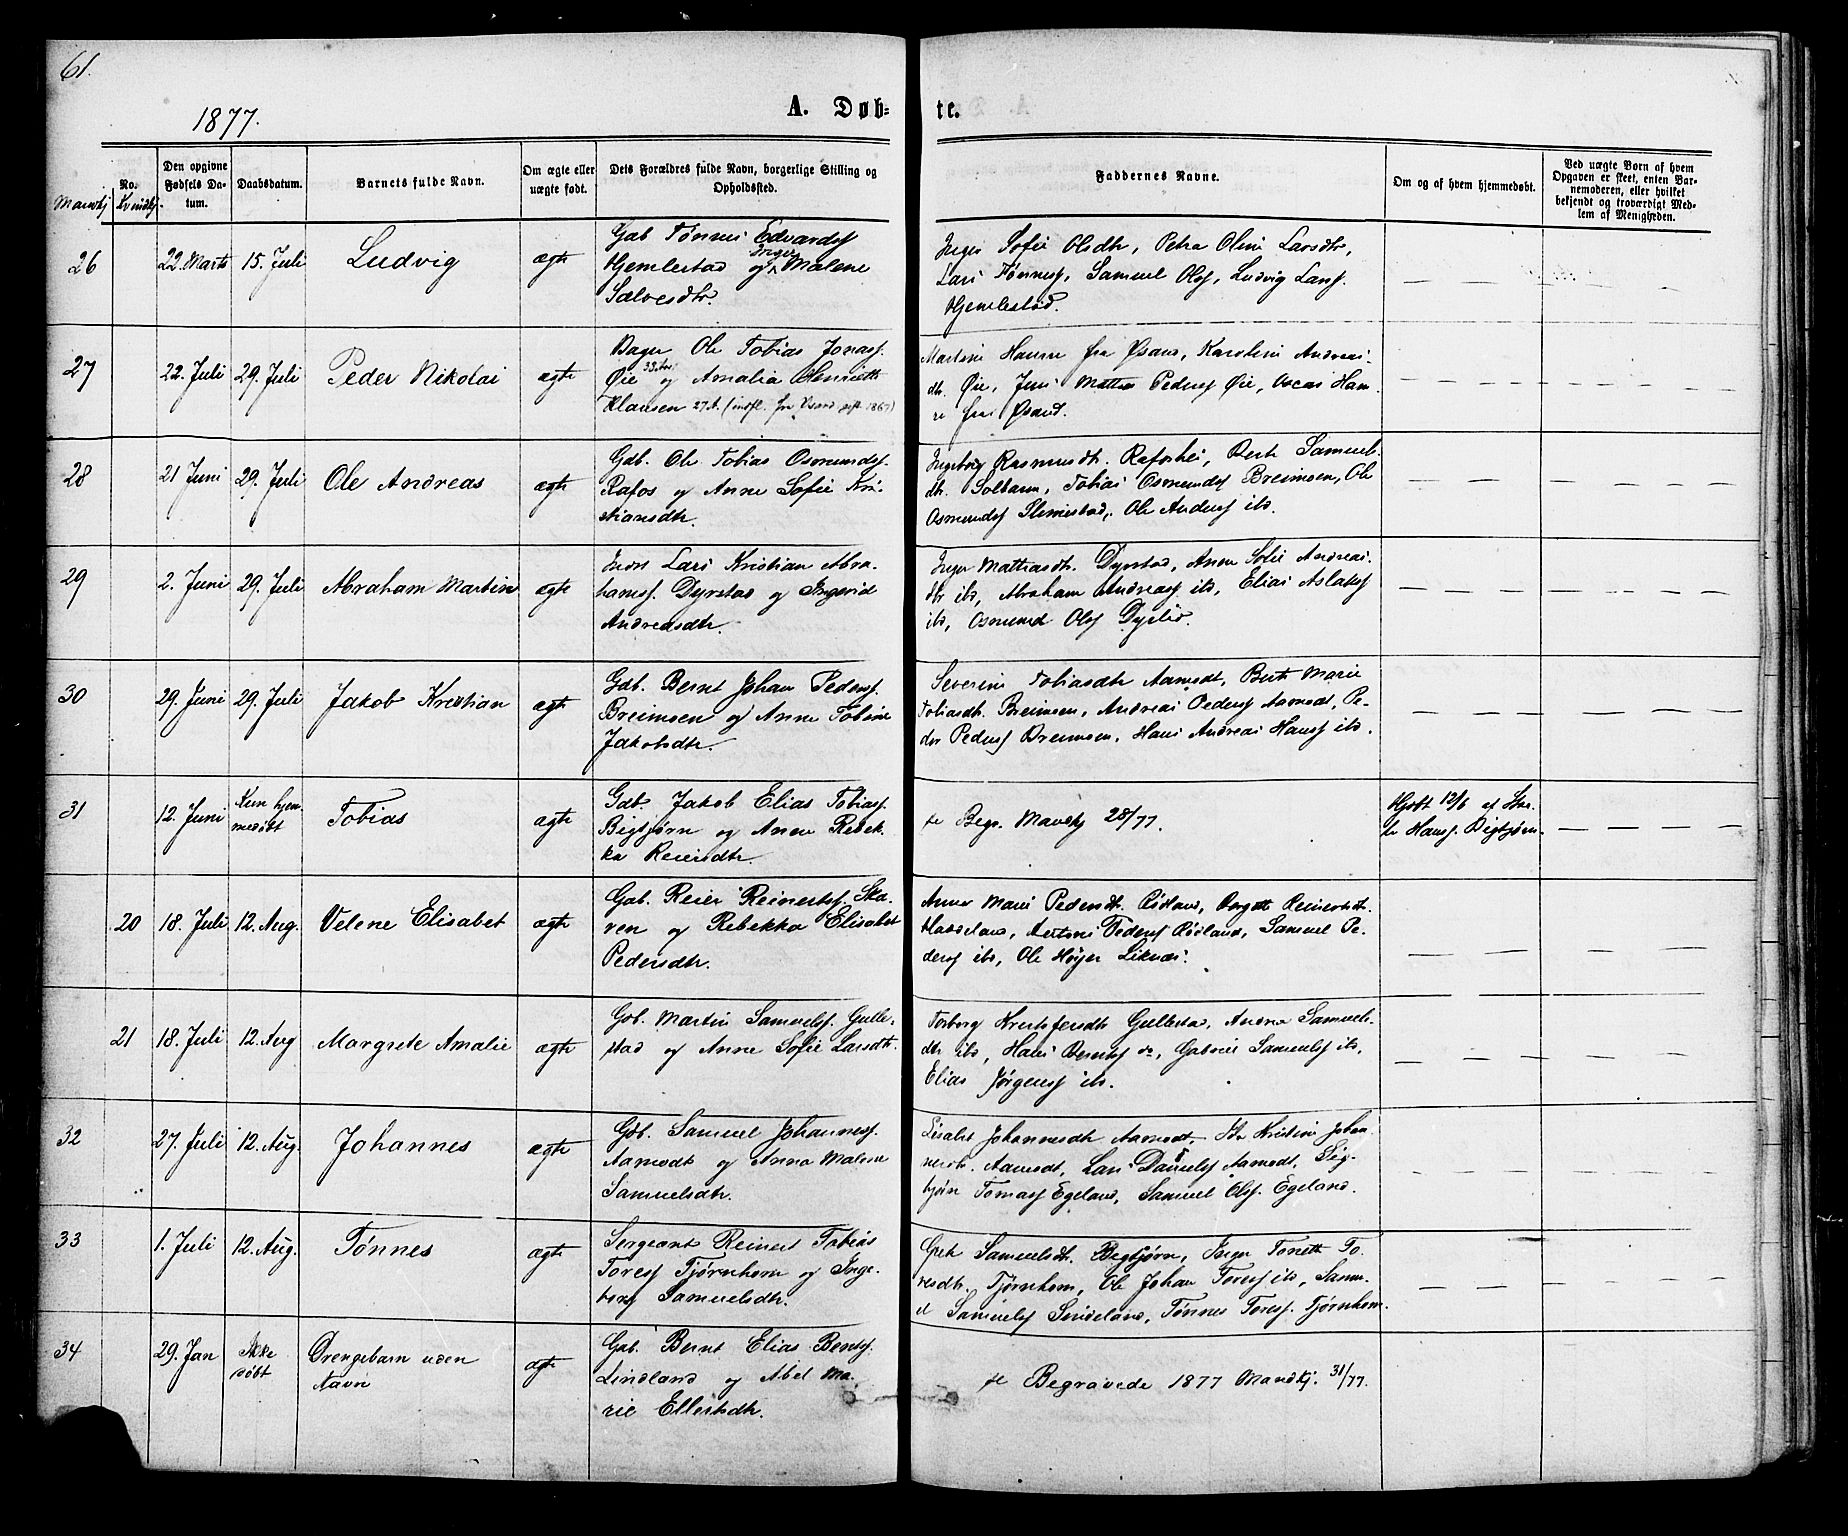 61.
1877.
A. Døb-
te.
Mandkj
No.
Kvindkj.
Den opgivne
Fødsels Da-
tum.
Daabsdatum.
Barnets fulde Navn.
Om ægte eller
uægte født.
Dets Forældres fulde Navn, borgerlige Stilling og
Opholdssted.
Faddernes Navne.
Om og af hvem hjemmedøbt.
Ved uægte Børn af hvem
Opgaven er skeet, enten Bar-
nemoderen, eller hvilket
bekjendt og troværdigt Med-
lem af Menigheden.
26
22. Marts
15. Juli
Ludvig
ægte
Gab Tønnes Edvardsf
Hjemlestad og Inger Malene
Salvesdtr.
Inger Sofie Olsdtr, Petra Oline Larsdtr,
Lars Tønnesf, Samuel Olsf, Ludvig Larsf.
Hjemlestad.
27
22. Juli
29. Juli
Peder Nikolai
ægte
Bager Ole Tobias Jonasf.
Øie 33 Aar og Amalia Henriette
Klausen 27 A. (indfl. fra gift 1867)
Martine Hansen fra Karoline Andreas-
dtr. Øie, Jens Mathias Pedersf Øie, Oscar Han-
fra
28
21 Juni
29. Juli
Ole Andreas
ægte
Gdb. Ole Tobias Osmundsf.
Rafos og Anne Sofie Kri-
stiansdtr.
Ingeborg Rasmusdtr. Rafoshei, Berte Samuels-
dtr. Tobias Osmundsf Breimoen, Ole
Osmundsf Slimestad, Ole Andersf ibd.
29
2. Juni
29. Juli
Abraham Martin
ægte
Inds Lars Kristian Abra-
hamsf. Dyrstad og Ingerid
Andreasdtr.
Inger Mathiasdtr. Dyrstad, Anne Sofie Andreas-
dtr ibd, Abraham Andreasf ibd, Elias Aslaksf
ibd, Osmund Olsf Dyrlid.
30
29. Juni
29. Juli
Jakob Kristian
ægte
Gdb. Bernt Johan Pedersf.
Breimoen og Anne Tobine
Jakobsdtr.
Severine Tobiasdtr Aamodt, Berte Marie
Tobiasdtr. Breimoen, Andreas Pedersf Aamodt, Pe-
der Pedersf Breimoen, Hans Andreas Hansf ibd.
31
12. Juni
Kun hjem-
medøbt
Tobias
ægte
Gdb. Jakob Elias Tobiasf.
Bigtjørn og Anne Rebek-
ka Reiersdtr.
se Begr. Mandkj 28/77.
Hjdøbt 12/6 af
Hansf. Bigtjørn.
20
18. Juli
12. Aug.
Velene Elisabet
ægte
Gab. Reier Reinertsf. Ska-
ren og Rebekka Elisabet
Pedersdtr.
Anne Marie Pedersdtr. Rødland, Reinertsdtr.
Hadeland, Antoni Pedersf Rødland, Samuel Pe-
dersf ibd, Ole Høyer Liknæs.
21
18. Juli
12. Aug
Margrete Amalie
ægte
Gob. Martin Samuelsf. Gulle-
stad og Anne Sofie Larsdtr.
Torborg Kristofersdtr Gullestad, Andrea Samuels-
dtr ibd, Hans Berntsf Gabriel Samuelsf ibd,
Elias Jørgensf ibd.
32
27. Juli
12. Aug.
Johannes
ægte
Gdb. Samuel Johannesf.
Aamodt og Anna Malene
Samuelsdtr.
Lisabet Johannesdtr Aamodt, Kristine Johan-
nesdtr. Aamodt, Lars Danielsf Aamodt, Sig-
bjørn Tomasf Egeland, Samuel Olsf. Egeland.
33
1. Juli
12. Aug.
Tønnes
ægte
Sergeant Reinert Tobias
Toresf Tjørnhom og Inge-
borg Samuelsdtr.
Grete Samuelsdtr. Bigtjørn, Inger Tonette To-
resdtr. Tjørnhom, Ole Johan Toresf ibd, Samu-
el Samuelsf Sindeland, Tønnes Toresf. Tjørnhom.
34
29. Jan
Ikke
døbt
Drengebarn uden
Navn
ægte
Gab. Bernt Elias Bentsf.
Lindland og Abel Ma-
rie Ellertsdtr.
se Begravede 1877 Mandkj. 31/77.